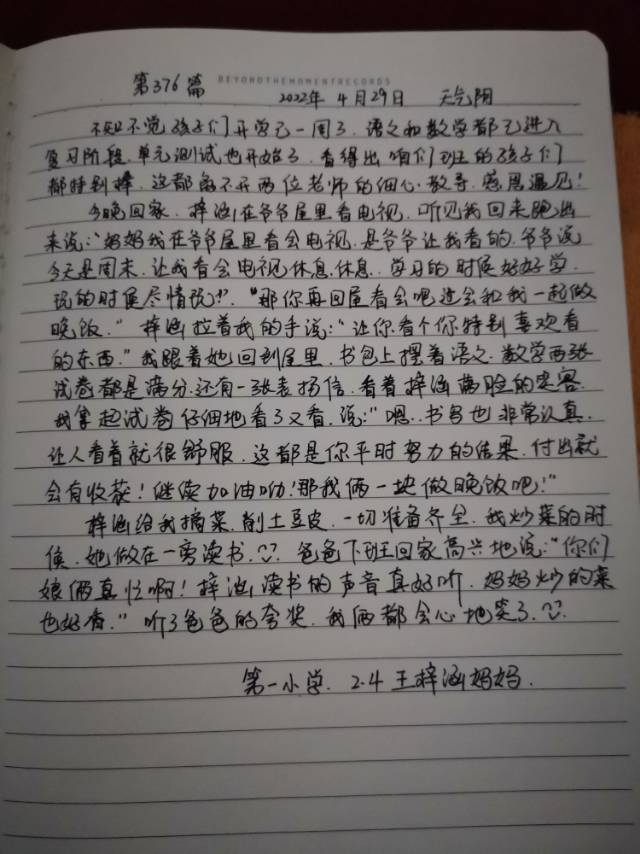 BEYONDTHEMOMENTRECORDS
第376篇
2022年4月29日 天气阴
不知不觉孩子们开学已一周了，语文和数学都已进入
复习阶段，单元测试也开始了，看得出咱们班的孩子们
都特别棒，这都离不开两位老师的细心教导，感恩遇见！
今晚回家，梓涵在爷爷屋里看电视，听见我回来跑出
来说：“妈妈我在爷爷屋里看会电视，是爷爷让我看的，爷爷说
今天是周末，让我看会电视休息，休息，学习的时候好好学，
玩的时候尽情玩！”“那你再回屋看会吧，这会和我一起做
晚饭。”梓涵拉着我的手说：“让你看个你特别喜欢看
的东西。”我跟着她回到屋里，书包上摆着语文，数学两张
试卷都是满分，还有一张表扬信，看着梓涵满脸的笑容，
我拿起试卷仔细地看了又看，说：“嗯，书写也非常认真，
让人看着就很舒服，这都是你平时努力的结果，付出就
会有收获！继续加油呦！那我俩一块做晚饭吧！”
梓涵给我摘菜，削土豆皮，一切准备齐全，我炒菜的时
候，她做在一旁读书，爸爸下班回家高兴地说：“你们
娘俩真忙啊！梓涵读书的声音真好听，妈妈炒的菜
也好香。”听了爸爸的夸奖，我俩都会心地笑了。
第一小学，2.4 王梓涵妈妈.